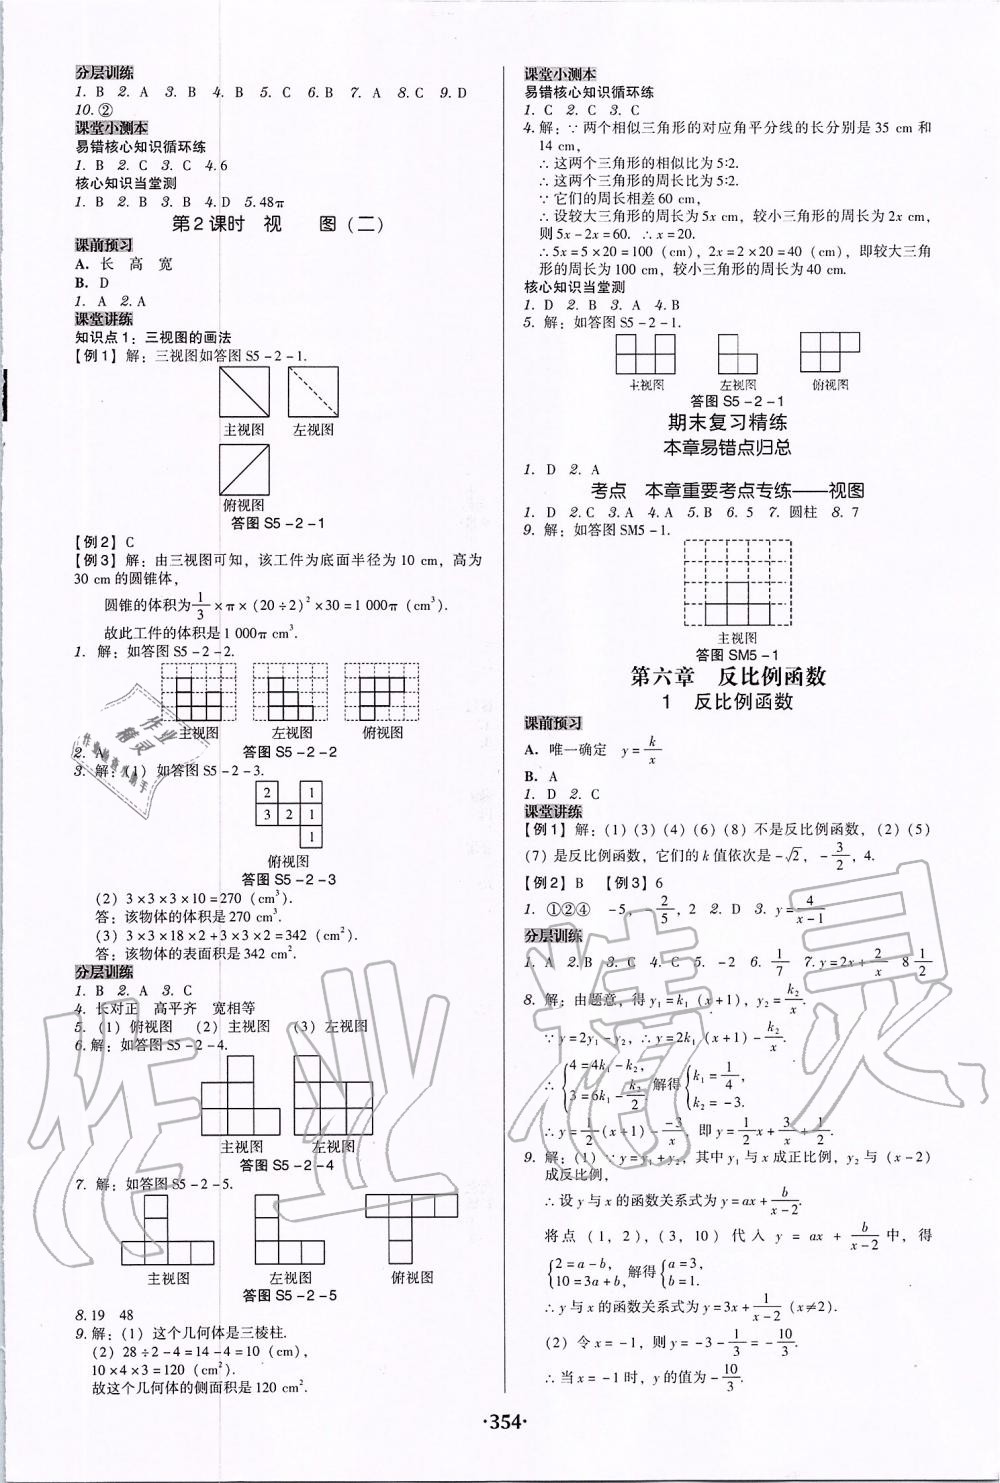 分层训练
1. B 2. A 3. B 4. B 5. C 6. B 7. A 8. C 9. D
10. ②
课堂小测本
易错核心知识循环练
1. B 2. C 3. C 4. 6
核心知识当堂测
1. B 2. B 3. B 4. D 5. 48π
第2课时 视 图(二)
课前预习
A. 长 高 宽
B. D
1. A 2. A
课堂讲练
知识点1:三视图的画法
【例1】解:三视图如答图S5-2-1.
主视图 左视图
俯视图
答图 S5-2-1
【例2】C
【例3】解:由三视图可知,该工件为底面半径为10 cm,高为
30 cm的圆锥体,
圆锥的体积为1/3×π×(20÷2)²×30=1 000π(cm³).
故此工件的体积是1 000π cm³.
1. 解:如答图S5-2-2.
主视图 左视图 俯视图
答图 S5-2-2
2. A
3. 解:(1)如答图S5-2-3.
2 1
3 2 1
1
俯视图
答图 S5-2-3
(2)3×3×3×10=270(cm³).
答:该物体的体积是270 cm³.
(3)3×3×18×2+3×3×2=342(cm²).
答:该物体的表面积是342 cm².
分层训练
1. B 2. A 3. C
4. 长对正 高平齐 宽相等
5. (1)俯视图 (2)主视图 (3)左视图
6. 解:如答图S5-2-4.
主视图 左视图
答图 S5-2-4
7. 解:如答图S5-2-5.
主视图 左视图 俯视图
答图 S5-2-5
8. 19 48
9. 解:(1)这个几何体是三棱柱.
(2)28÷2-4=14-4=10(cm),
10×4×3=120(cm²).
故这个几何体的侧面积是120 cm².
课堂小测本
易错核心知识循环练
1. C 2. C 3. C
4. 解:∵两个相似三角形的对应角平分线的长分别是35 cm和
14 cm,
∴这两个三角形的相似比为5∶2.
∴这两个三角形的周长比为5∶2.
∵它们的周长相差60 cm,
∴设较大三角形的周长为5x cm,较小三角形的周长为2x cm,
则5x-2x=60. ∴x=20.
∴5x=5×20=100(cm),2x=2×20=40(cm),即较大三角
形的周长为100 cm,较小三角形的周长为40 cm.
核心知识当堂测
1. D 2. B 3. A 4. B
5. 解:如答图S5-2-1.
主视图 左视图 俯视图
答图 S5-2-1
期末复习精练
本章易错点归总
1. D 2. A
考点 本章重要考点专练——视图
1. D 2. C 3. A 4. A 5. B 6. 5 7. 圆柱 8. 7
9. 解:如答图SM5-1.
主视图
答图 SM5-1
第六章 反比例函数
1 反比例函数
课前预习
A. 唯一确定 y=k/x
B. A
1. D 2. C
课堂讲练
【例1】解:(1)(3)(4)(6)(8)不是反比例函数,(2)(5)
(7)是反比例函数,它们的k值依次是-√2,-3/2,4.
【例2】B 【例3】6
1. ①②④ -5,-2/5,2 2. D 3. y=4/(x-1)
分层训练
1. A 2. B 3. C 4. C 5. -2 6. 1/7 7. y=2x+2/x 8 1/2
8. 解:由题意,得y₁=k₁(x+1),y₂=k₂/x.
∵y=2y₁-y₂,∴y=2k₁(x+1)-k₂/x.
∴{4=4k₁-k₂, 3=6k₁-k₂/2. 解得{k₁=1/4, k₂=-3.
∴y=1/2(x+1)--3/x 即y=1/2x+3/x+1/2.
9. 解:(1)∵y=y₁+y₂,其中y₁与x成正比例,y₂与(x-2)
成反比例,
∴设y与x的函数关系式为y=ax+b/(x-2).
将点(1,2),(3,10)代入y=ax+b/(x-2)中,得
{2=a-b, 10=3a+b, 解得{a=3, b=1.
∴y与x的函数关系式为y=3x+1/(x-2)(x≠2).
(2)令x=-1,则y=-3-1/3=-10/3.
∴当x=-1时,y的值为-10/3.
·354·
作业精灵
作业精灵